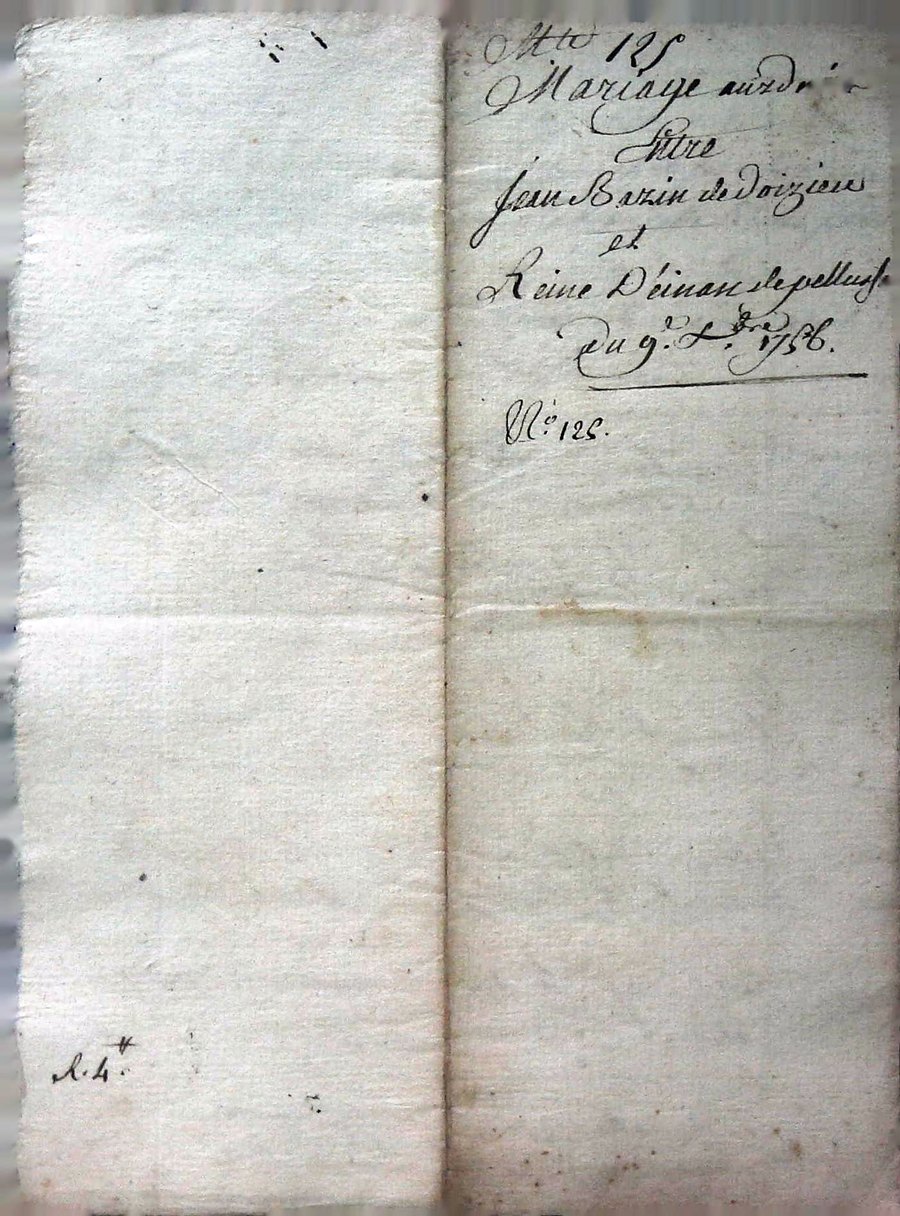 125
Mariage
Entre
Jean Bazin de Doizieu
et
Reine Déinan de pellus
du 9.e X.bre 1756.
N.o 125.
R. 4.tt